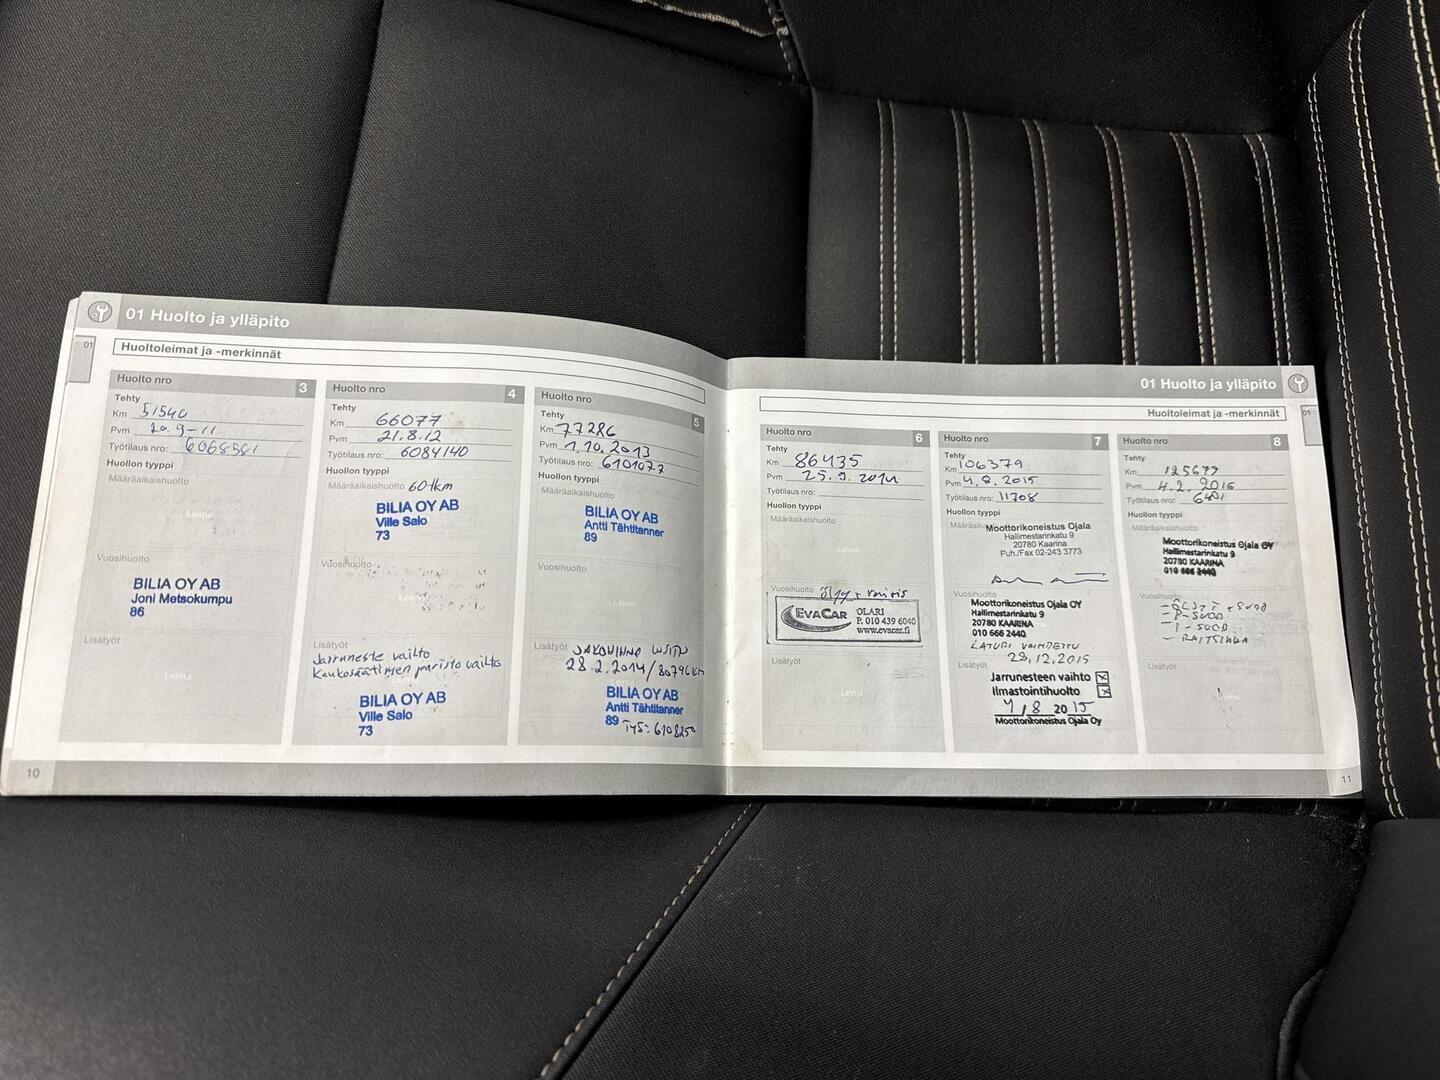 01 Huolto ja ylläpito
01
Huoltoleimat ja -merkinnät
Huolto nro 3
Tehty
Km 51540
Pvm 20.9-11
Työtilaus nro: 6068581
Huollon tyyppi
Määräaikaishuolto
Leima
Vuosihuolto
BILIA OY AB
Joni Metsokumpu
86
Lisätyöt
Leima
Huolto nro 4
Tehty
Km 66077
Pvm 21.8.12
Työtilaus nro: 6084140
Huollon tyyppi
Määräaikaishuolto 60tkm
BILIA OY AB
Ville Salo
73
Vuosihuolto
Leima
Lisätyöt
Jarruneste vaihto
Kaukosäätimen paristo vaihto
BILIA OY AB
Ville Salo
73
Huolto nro 5
Tehty
Km 77286
Pvm 1.10.2013
Työtilaus nro: 6101077
Huollon tyyppi
Määräaikaishuolto
BILIA OY AB
Antti Tähtitanner
89
Vuosihuolto
Leima
Lisätyöt JAKOHIHNA
28.2.2014/80796km
BILIA OY AB
Antti Tähtitanner
89
10
01 Huolto ja ylläpito
01
Huoltoleimat ja -merkinnät
Huolto nro 6
Tehty
Km 86435
Pvm 25.9.2014
Työtilaus nro:
Huollon tyyppi
Määräaikaishuolto
Leima
Vuosihuolto öljy +
EVACAR OLARI
P. 010 439 6040
www.evacar.fi
Lisätyöt
Leima
Huolto nro 7
Tehty
Km 106379
Pvm 4.8.2015
Työtilaus nro: 11708
Huollon tyyppi
Moottorikoneistus Ojala
Hallimestarinkatu 9
20780 Kaarina
Puh./Fax 02-243 3773
Vuosihuolto
Moottorikoneistus Ojala OY
Hallimestarinkatu 9
20780 KAARINA
010 666 2440
LATURI VAIHDETTU
29.12.2015
Lisätyöt
Jarrunesteen vaihto
Ilmastointihuolto
4.8 2015
Moottorikoneistus Ojala Oy
Huolto nro 8
Tehty
Km 125677
Pvm 4.2.2016
Työtilaus nro:
Huollon tyyppi
Määräaikaishuolto
Moottorikoneistus Ojala OY
Hallimestarinkatu 9
20780 KAARINA
010 666 2440
Vuosihuolto
- ÖLJYT + SUOD
- P-SUOD
- I-SUOD
Lisätyöt
11